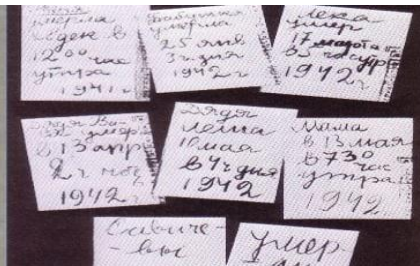 Женя
умерла
28 дек в
12 00 час
утра
1941 г
Бабушка
умерла
25 янв
3 ч. дня
1942 г
Лека
умер
17 марта
в 5 час утр
1942 г
Дядя Ва-
ся умер
в 13 апр
2 ч ноч
1942 г
Дядя
Леша
10 мая
в 4 ч дня
1942
Мама
в 13 мая
в 7 30
час
утра
1942
Савиче-
-вы
Умер-